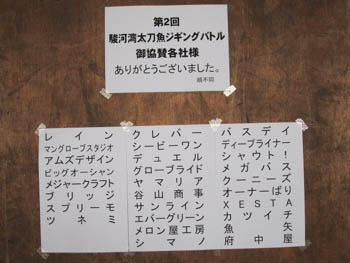 第2回
駿河湾太刀魚ジギングバトル
御協賛各社様
ありがとうございました。
順不同
レイン
マングローブスタジオ
アムズデザイン
ビッグオーシャン
メジャークラフト
ブリッジ
スブリーモ
ツネミ
クレバー
シービーワン
デュエル
グローブライド
ヤマリア
谷山商事
サンライン
エバーグリーン
メロン屋工房
シマノ
バスデイ
ディープライナー
シャウト!
メガバス
クーニーズ
オーナーばり
XESTA
カツイチ
魚矢
府中屋